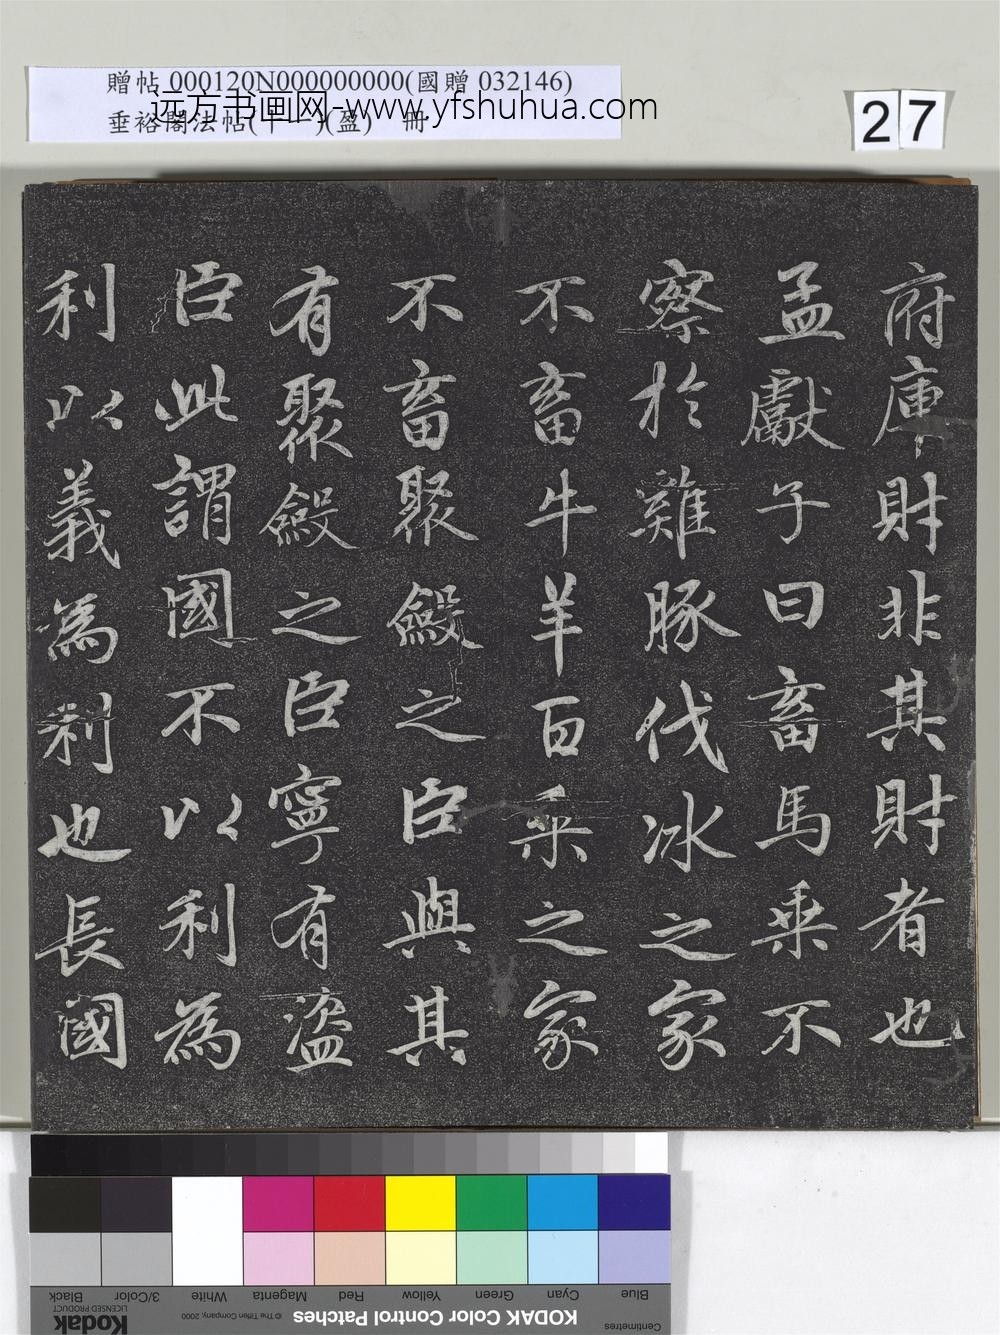 贈帖 000120N000000000(國贈 032146)
远方书画网-www.yfshuhua.com
垂裕閣法帖(十一)(盈) 冊
27
府庫財非其財者也
孟獻子曰畜馬乘不
察於雞豚伐冰之家
不畜牛羊百乘之家
不畜聚斂之臣與其
有聚斂之臣寧有盜
臣此謂國不以利為
利以義為利也長國
Blue
Cyan
Green
Yellow
Red
Magenta
White
3/Color
Black
KODAK Color Control Patches
© The Tiffen Company, 2000
Kodak
LICENSED PRODUCT
Centimetres